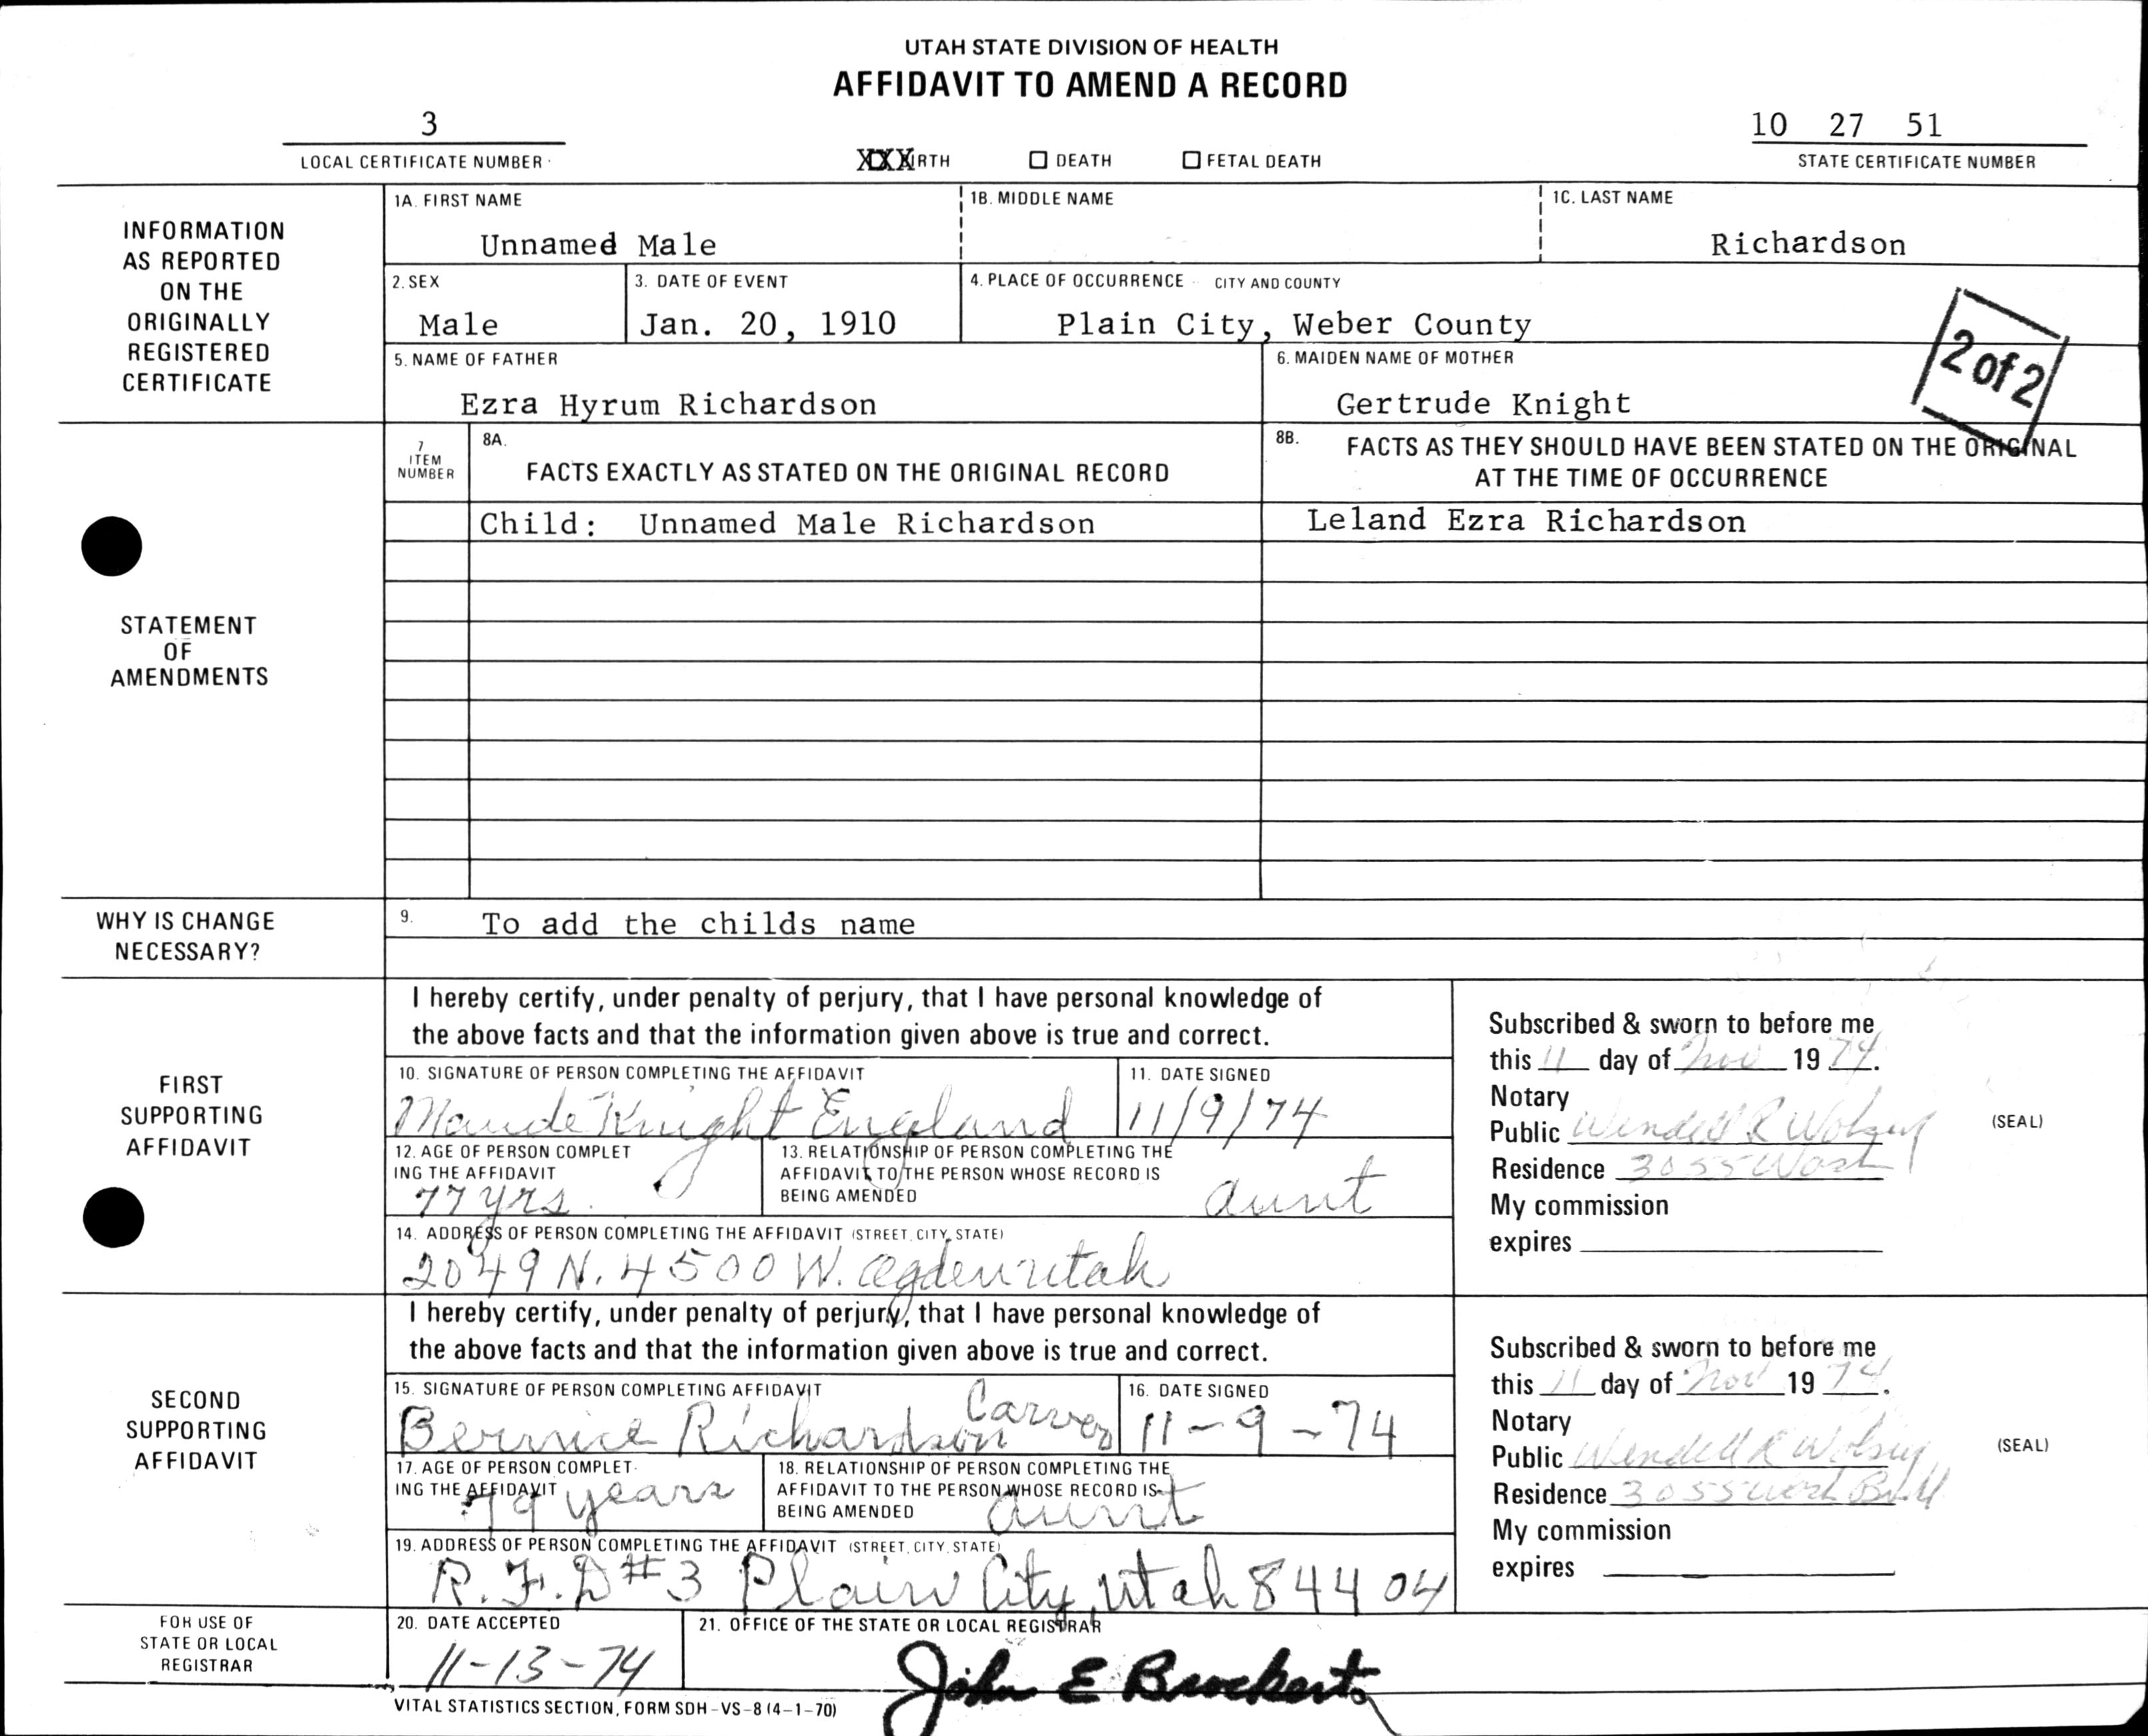 UTAH STATE DIVISION OF HEALTH
AFFIDAVIT TO AMEND A RECORD
3
LOCAL CERTIFICATE NUMBER
XXXIRTH DEATH FETAL DEATH
10 27 51
STATE CERTIFICATE NUMBER
INFORMATION
AS REPORTED
ON THE
ORIGINALLY
REGISTERED
CERTIFICATE
1A. FIRST NAME
Unnamed Male
1B. MIDDLE NAME
1C. LAST NAME
Richardson
2. SEX
Male
3. DATE OF EVENT
Jan. 20, 1910
4. PLACE OF OCCURRENCE CITY AND COUNTY
Plain City, Weber County
2 of 2
5. NAME OF FATHER
Ezra Hyrum Richardson
6. MAIDEN NAME OF MOTHER
Gertrude Knight
STATEMENT
OF
AMENDMENTS
7
ITEM
NUMBER
8A.
FACTS EXACTLY AS STATED ON THE ORIGINAL RECORD
8B. FACTS AS THEY SHOULD HAVE BEEN STATED ON THE ORIGINAL
AT THE TIME OF OCCURRENCE
Child: Unnamed Male Richardson
Leland Ezra Richardson
WHY IS CHANGE
NECESSARY?
9. To add the childs name
FIRST
SUPPORTING
AFFIDAVIT
I hereby certify, under penalty of perjury, that I have personal knowledge of
the above facts and that the information given above is true and correct.
10. SIGNATURE OF PERSON COMPLETING THE AFFIDAVIT
Maude Knight England
11. DATE SIGNED
11/9/74
12. AGE OF PERSON COMPLET
ING THE AFFIDAVIT
77 yrs.
13. RELATIONSHIP OF PERSON COMPLETING THE
AFFIDAVIT TO THE PERSON WHOSE RECORD IS
BEING AMENDED
aunt
14. ADDRESS OF PERSON COMPLETING THE AFFIDAVIT (STREET, CITY, STATE)
2049 N. 4500 W. Ogden utah
Subscribed & sworn to before me
this 11 day of Nov 19 74.
Notary
Public Wendell R
Residence 3055 Wash
My commission
expires
(SEAL)
SECOND
SUPPORTING
AFFIDAVIT
I hereby certify, under penalty of perjury, that I have personal knowledge of
the above facts and that the information given above is true and correct.
15. SIGNATURE OF PERSON COMPLETING AFFIDAVIT
Bernice Richardson Carver
16. DATE SIGNED
11-9-74
17. AGE OF PERSON COMPLET-
ING THE AFFIDAVIT
79 years
18. RELATIONSHIP OF PERSON COMPLETING THE
AFFIDAVIT TO THE PERSON WHOSE RECORD IS
BEING AMENDED
aunt
19. ADDRESS OF PERSON COMPLETING THE AFFIDAVIT (STREET, CITY, STATE)
R.F.D #3 Plain City, Utah 84404
Subscribed & sworn to before me
this 11 day of Nov 19 74.
Notary
Public Wendell R
Residence 3055 Wash Blvd
My commission
expires
(SEAL)
FOR USE OF
STATE OR LOCAL
REGISTRAR
20. DATE ACCEPTED
11-13-74
21. OFFICE OF THE STATE OR LOCAL REGISTRAR
John E Brockert
VITAL STATISTICS SECTION, FORM SDH-VS-8 (4-1-70)